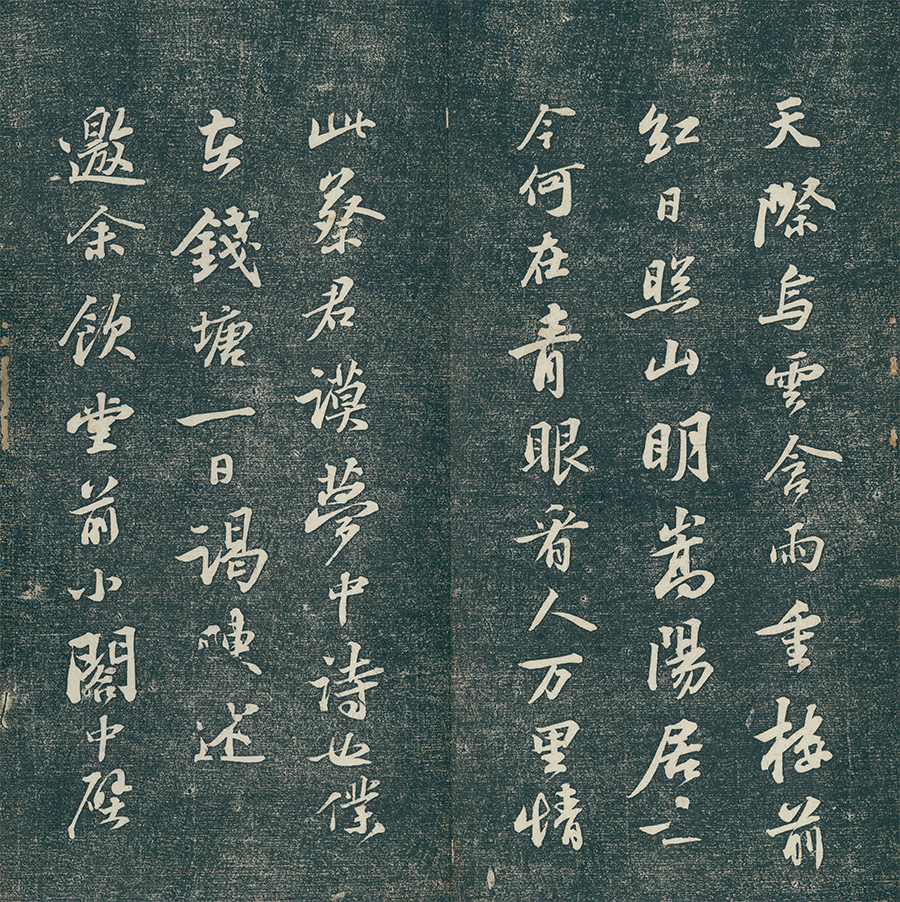 天際烏雲含雨重樓前
紅日照山明嵩陽居士
今何在青眼看人万里情
此蔡君謨夢中詩也僕
在錢塘一日謁陳述
邀余飲堂前小閣中壁